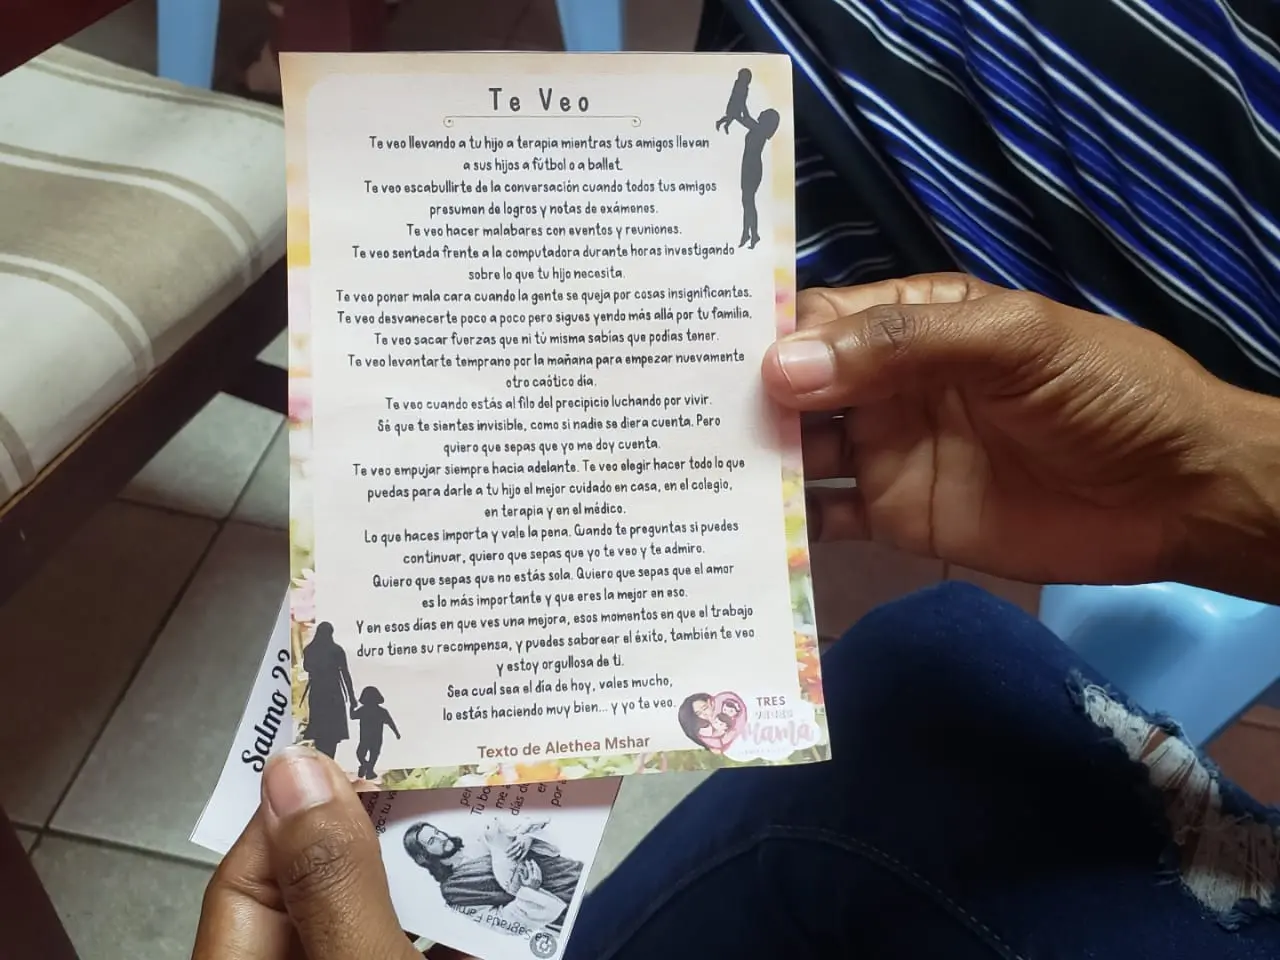 Te Veo
Te veo llevando a tu hijo a terapia mientras tus amigos llevan
a sus hijos a fútbol o a ballet.
Te veo escabullirte de la conversación cuando todos tus amigos
presumen de logros y notas de exámenes.
Te veo hacer malabares con eventos y reuniones.
Te veo sentada frente a la computadora durante horas investigando
sobre lo que tu hijo necesita.
Te veo poner mala cara cuando la gente se queja por cosas insignificantes.
Te veo desvanecerte poco a poco pero sigues yendo más allá por tu familia.
Te veo sacar fuerzas que ni tú misma sabías que podías tener.
Te veo levantarte temprano por la mañana para empezar nuevamente
otro caótico día.
Te veo cuando estás al filo del precipicio luchando por vivir.
Sé que te sientes invisible, como si nadie se diera cuenta. Pero
quiero que sepas que yo me doy cuenta.
Te veo empujar siempre hacia adelante. Te veo elegir hacer todo lo que
puedas para darle a tu hijo el mejor cuidado en casa, en el colegio,
en terapia y en el médico.
Lo que haces importa y vale la pena. Cuando te preguntas si puedes
continuar, quiero que sepas que yo te veo y te admiro.
Quiero que sepas que no estás sola. Quiero que sepas que el amor
es lo más importante y que eres la mejor en eso.
Y en esos días en que ves una mejora, esos momentos en que el trabajo
duro tiene su recompensa, y puedes saborear el éxito, también te veo
y estoy orgullosa de ti.
Sea cual sea el día de hoy, vales mucho,
lo estás haciendo muy bien... y yo te veo.
Texto de Alethea Mshar
TRES
mamá
Salmo 23
Tu
me
días
por
Sagrada Famili